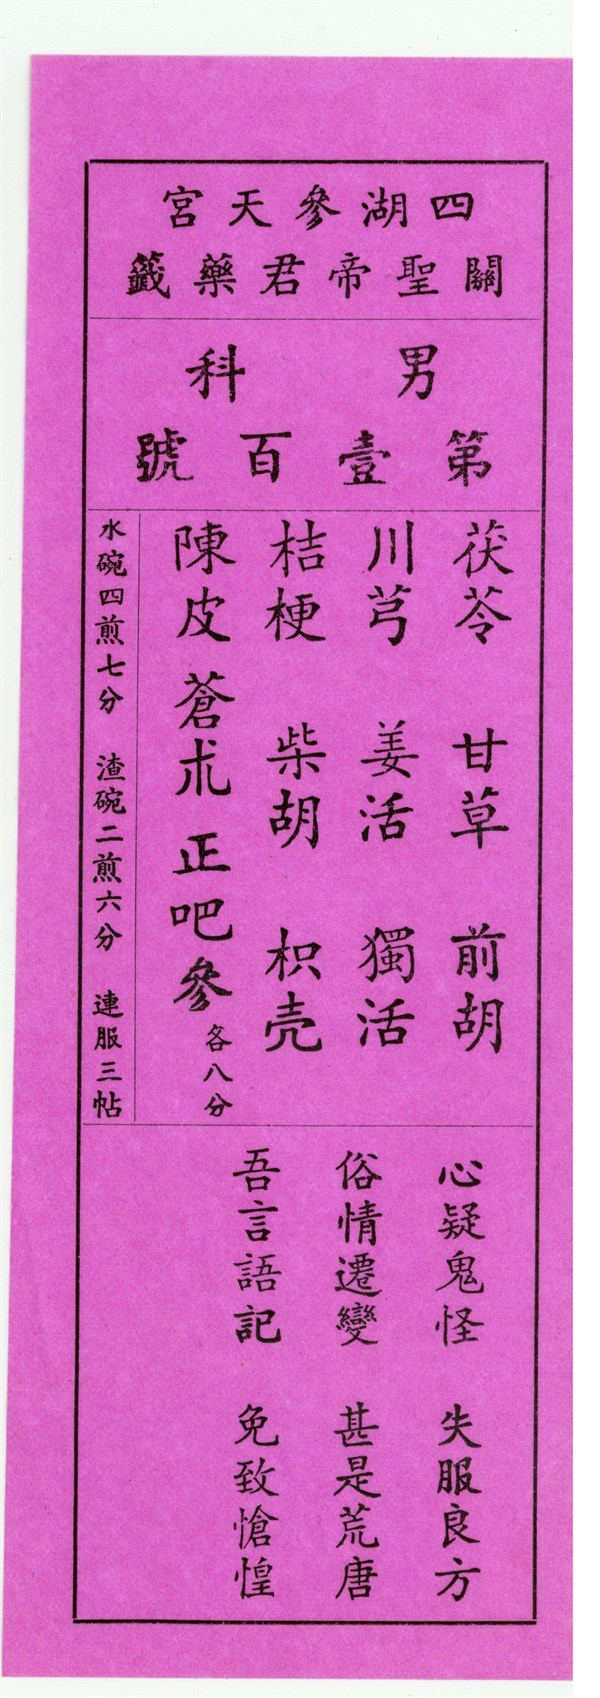 四湖參天宮
關聖帝君藥籤
男科
第壹百號
茯苓 甘草 前胡
川芎 姜活 獨活
桔梗 柴胡 枳壳
陳皮 蒼朮 正吧參 各八分
水碗四煎七分 渣碗二煎六分 連服三帖
心疑鬼怪 失服良方
俗情遷變 甚是荒唐
吾言語記 免致愴惶